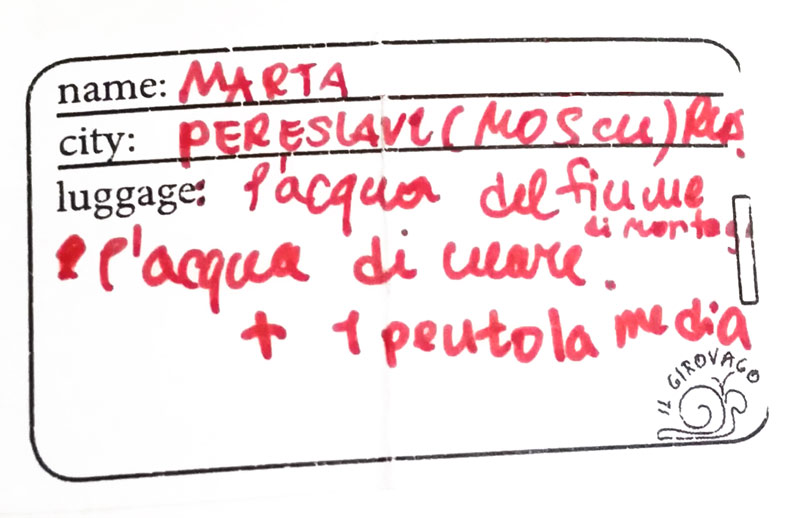 name: MARTA
city: PERESLAVL (MOSCU) RUS.
luggage: l'acqua del fiume
di montag
e l'acqua di mare.
+ 1 pentola media
IL GIROVAGO